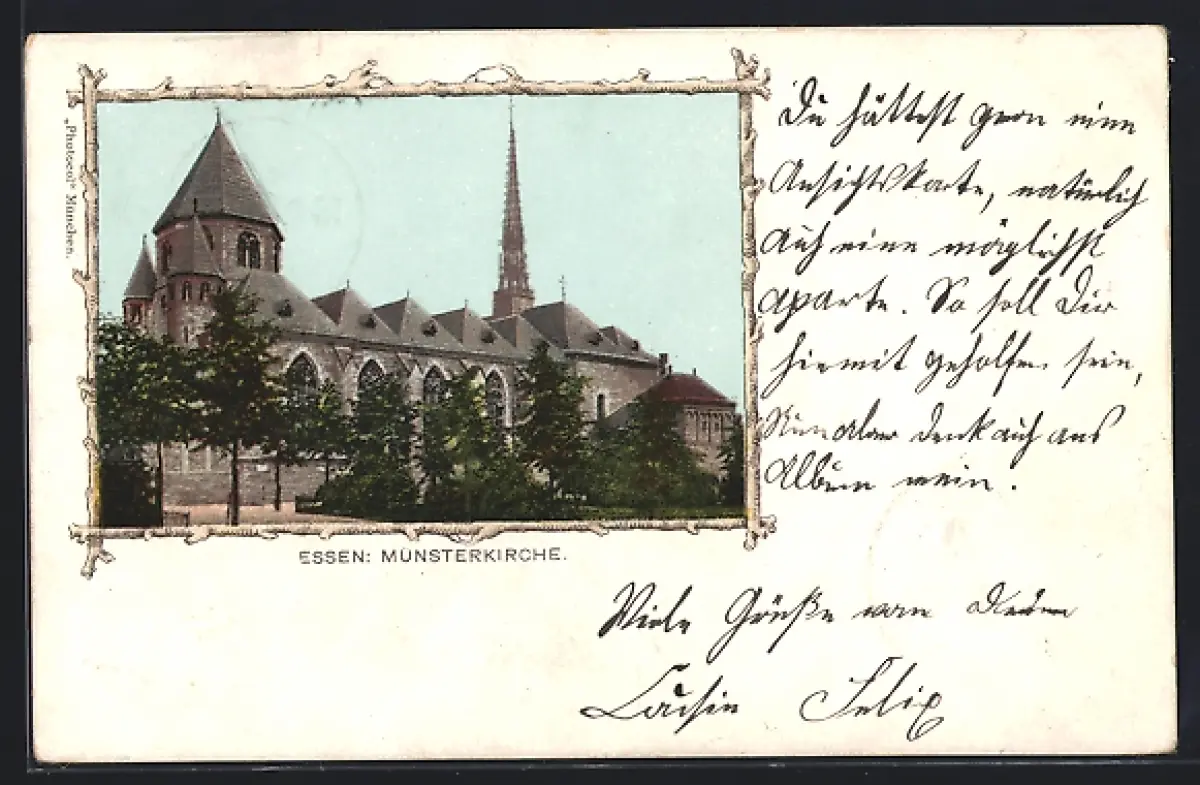 „Photocol“ München.
ESSEN: MÜNSTERKIRCHE.
Du hättest gern eine
Ansichtskarte, natürlich
auch eine möglichst
aparte. So soll Dir
hiemit geholfen sein,
Nun aber denk auch ans
Album mein.
Viele Grüße von Deinem
Felix